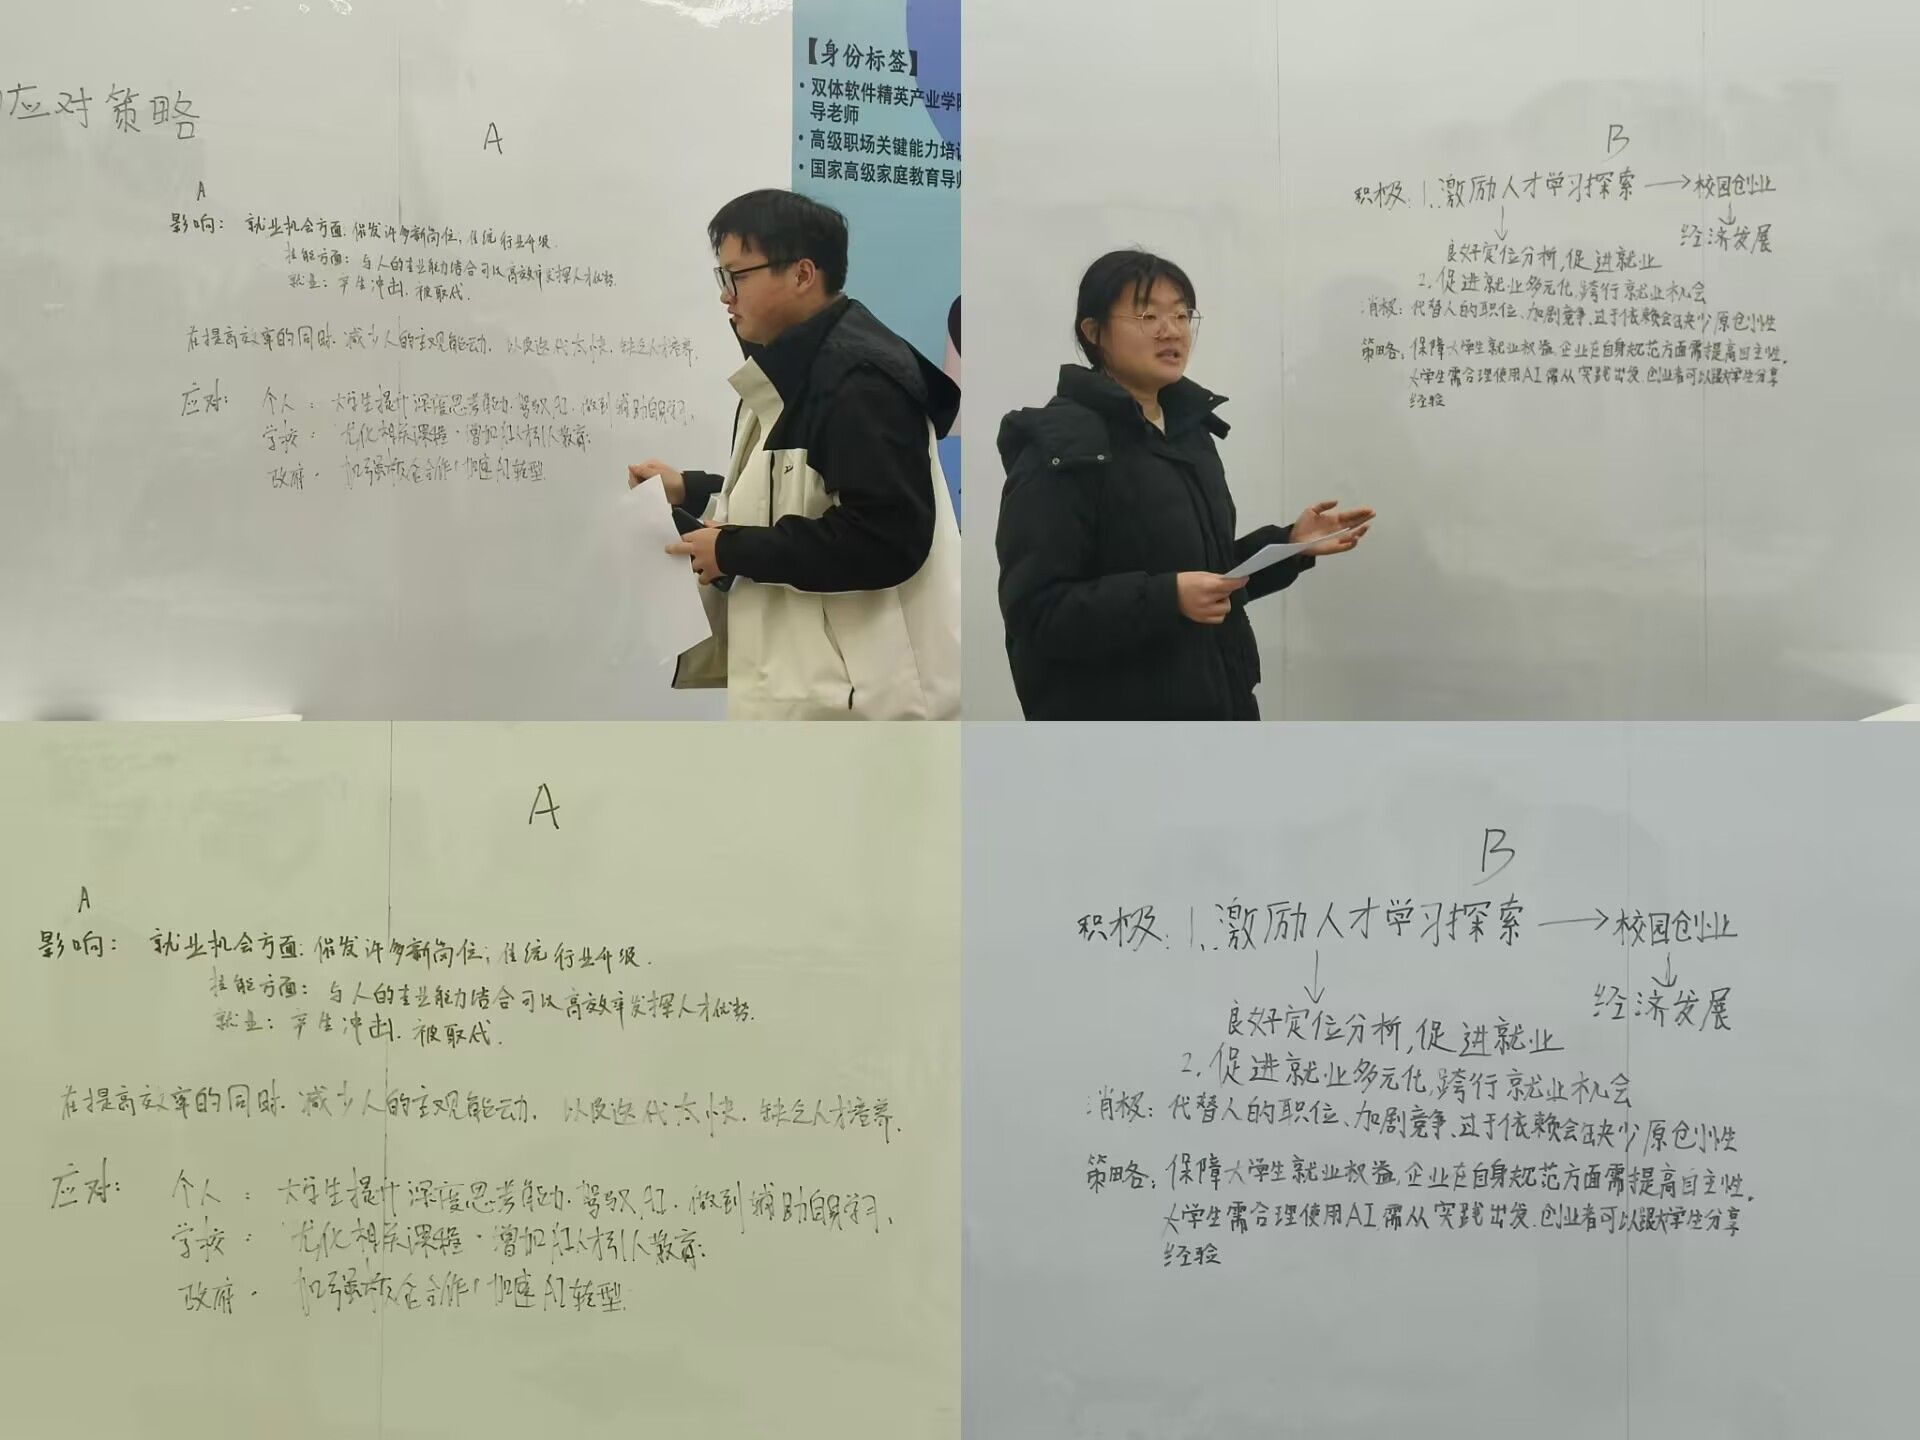 应对策略
A
A
影响：就业机会方面：催发许多新岗位；传统行业升级．
技能方面：与人的专业能力结合可以高效率发挥人才优势．
就业：产生冲击．被取代．
在提高效率的同时．减少人的主观能动．以及迭代太快．缺乏人才培养．
应对：个人：大学生提升深度思考能力．驾驭AI．做到辅助自身学习．
学校：优化相关课程．增加AI人才引入教育；
政府．加强校企合作，加速AI转型．
【身份标签】
·双体软件精英产业学
导老师
·高级职场关键能力培
·国家高级家庭教育导师
B
积极：1.激励人才学习探索→校园创业
↓ ↓
经济发展
良好定位分析，促进就业
2.促进就业多元化，跨行就业机会
消极：代替人的职位、加剧竞争、过于依赖会缺少原创性
策略：保障大学生就业权益，企业在自身规范方面需提高自主性．
大学生需合理使用AI需从实践出发．创业者可以跟大学生分享
经验
A
A
影响：就业机会方面：催发许多新岗位；传统行业升级．
技能方面：与人的专业能力结合可以高效率发挥人才优势．
就业：产生冲击．被取代．
在提高效率的同时．减少人的主观能动．以及迭代太快．缺乏人才培养．
应对：个人：大学生提升深度思考能力．驾驭AI．做到辅助自身学习．
学校：优化相关课程．增加AI人才引入教育；
政府．加强校企合作，加速AI转型．
B
积极：1.激励人才学习探索→校园创业
↓ ↓
经济发展
良好定位分析，促进就业
2.促进就业多元化，跨行就业机会
消极：代替人的职位、加剧竞争、过于依赖会缺少原创性
策略：保障大学生就业权益，企业在自身规范方面需提高自主性．
大学生需合理使用AI需从实践出发．创业者可以跟大学生分享
经验